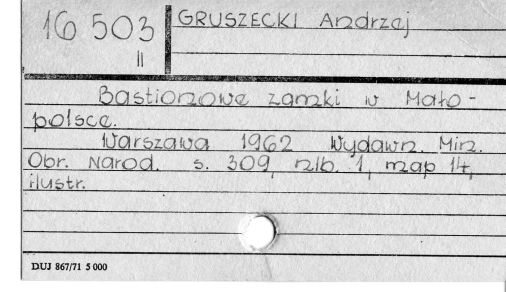 16 503
II
GRUSZECKI Andrzej
Bastionowe zamki w Mało-
polsce.
Warszawa 1962 Wydawn. Min.
Obr. Narod. s. 309, nlb. 1, map 14,
ilustr.
DUJ 867/71 5 000